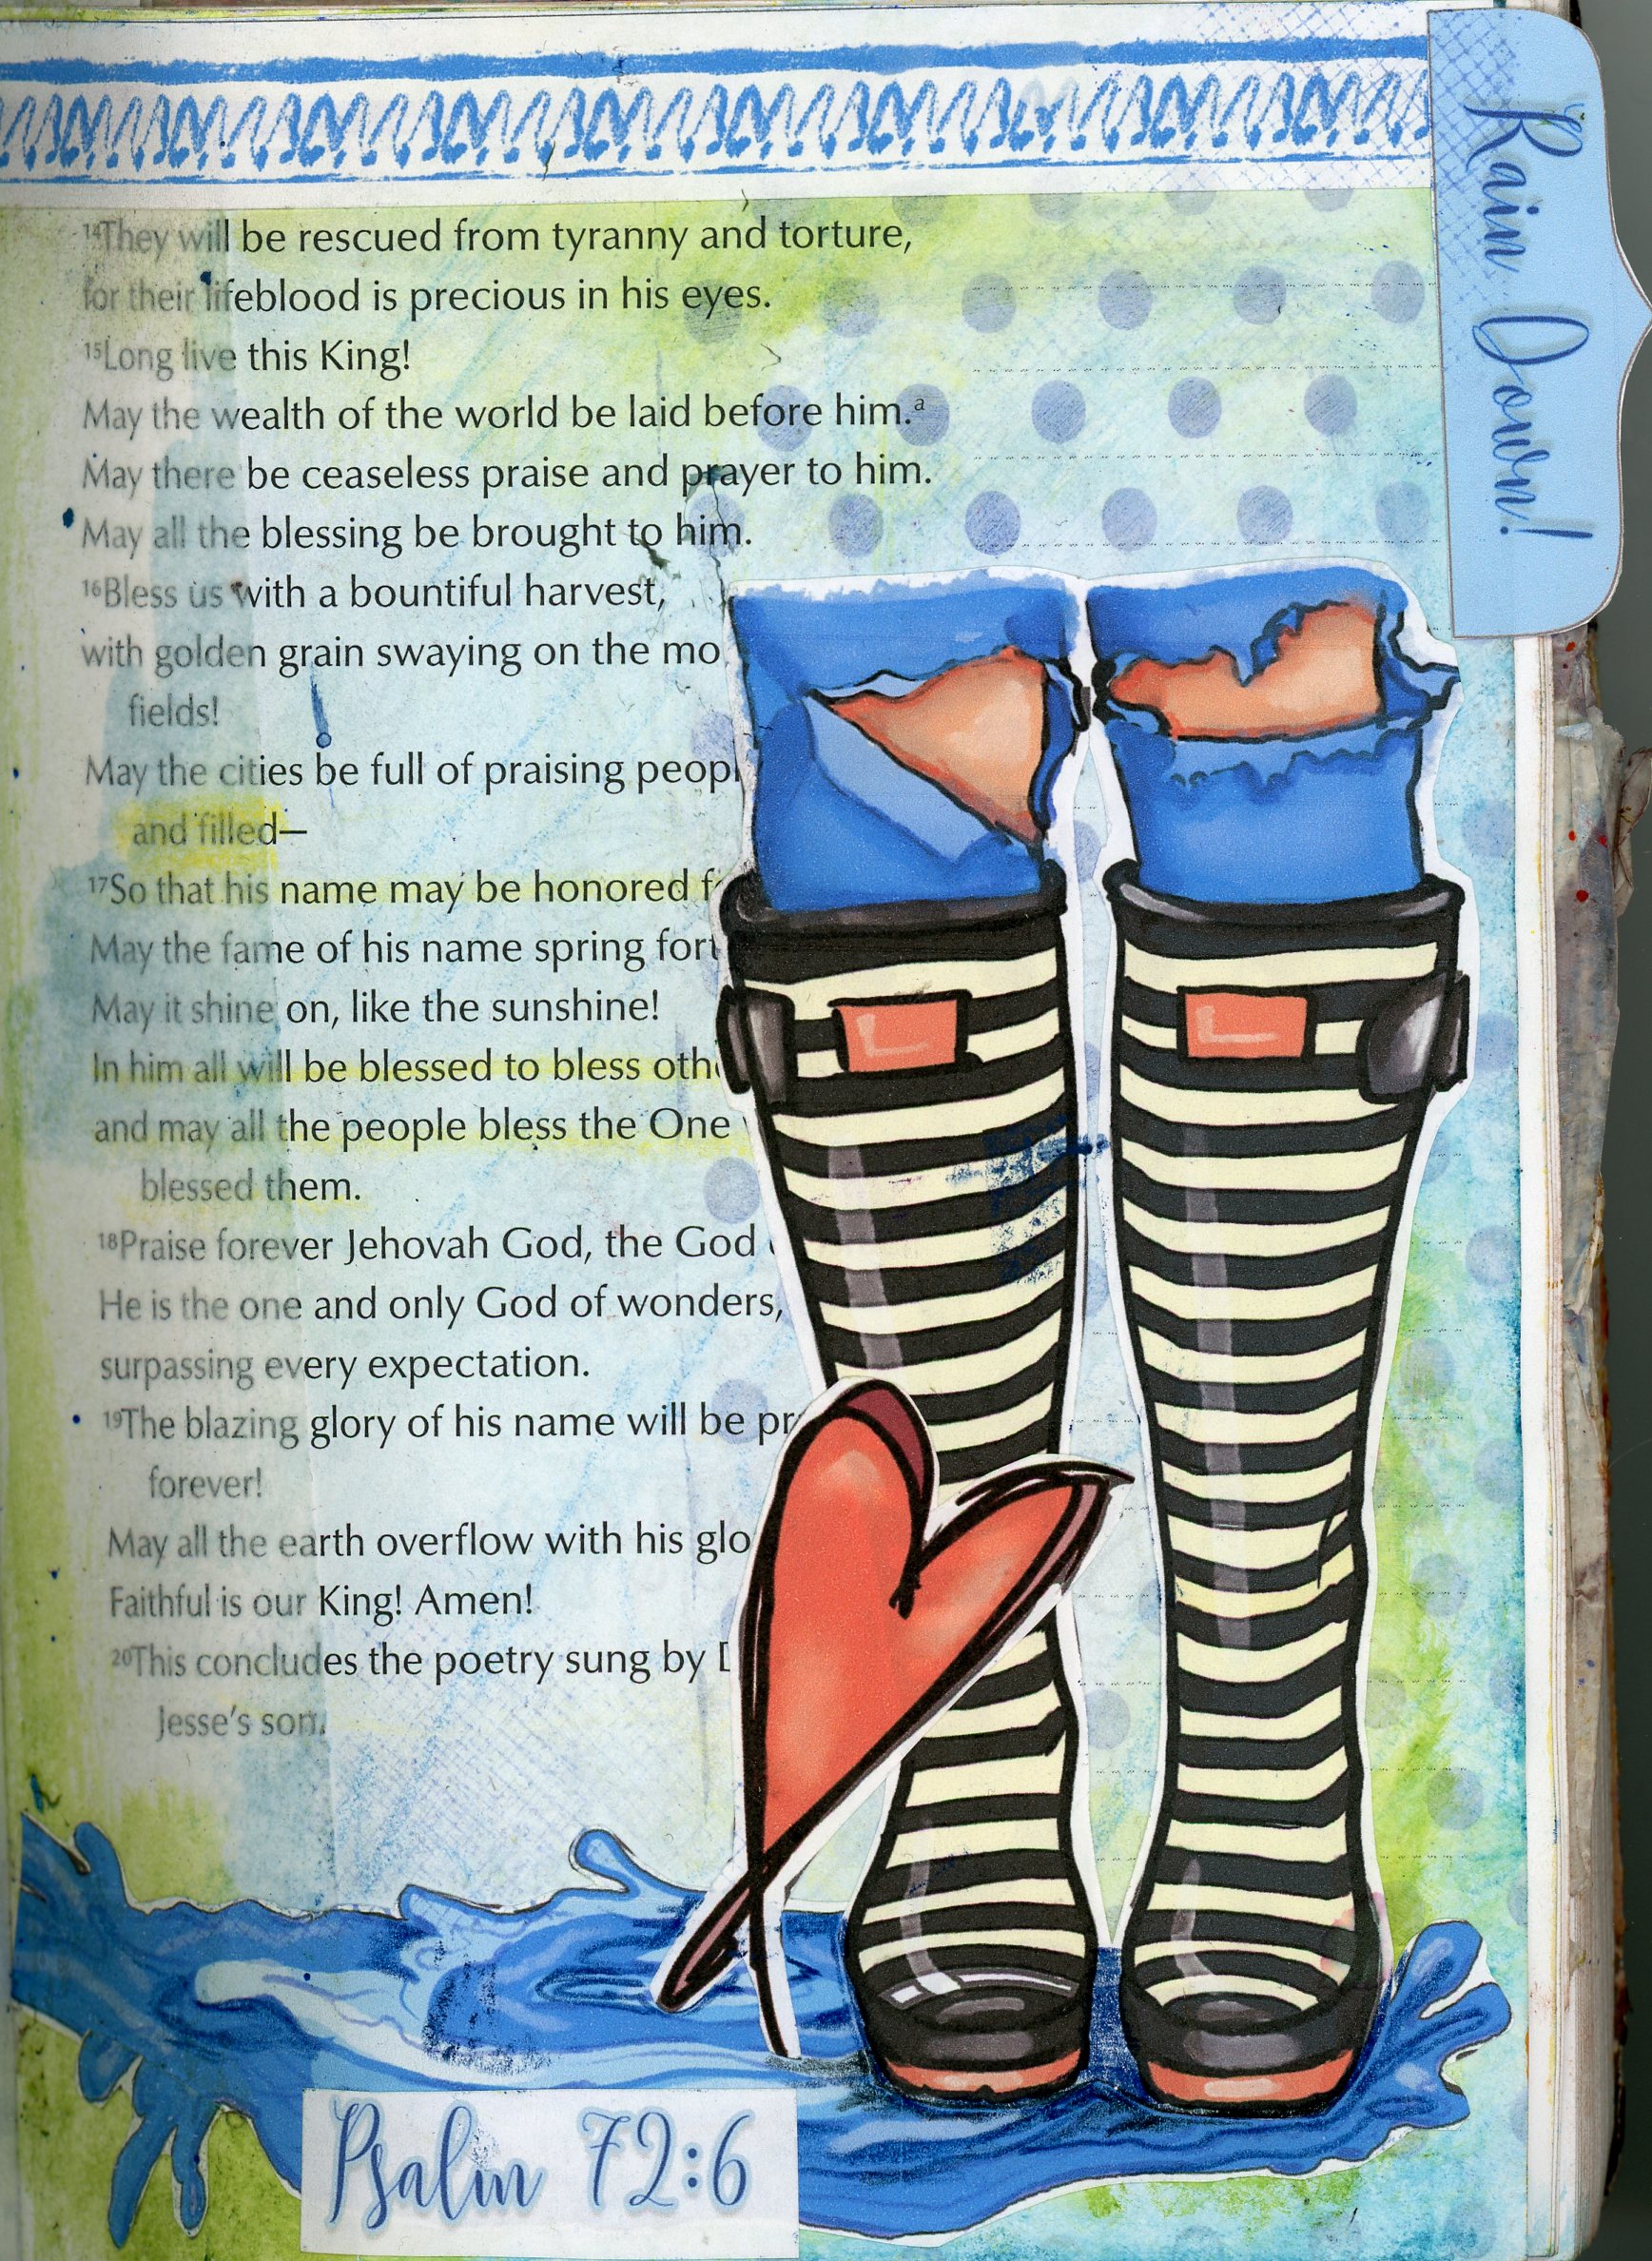 Rain Down!
14They will be rescued from tyranny and torture,
for their lifeblood is precious in his eyes.
15Long live this King!
May the wealth of the world be laid before him.a
May there be ceaseless praise and prayer to him.
May all the blessing be brought to him.
16Bless us with a bountiful harvest,
with golden grain swaying on the mo
fields!
May the cities be full of praising peopl
and filled—
17So that his name may be honored f
May the fame of his name spring fort
May it shine on, like the sunshine!
In him all will be blessed to bless oth
and may all the people bless the One
blessed them.
18Praise forever Jehovah God, the God
He is the one and only God of wonders,
surpassing every expectation.
19The blazing glory of his name will be pr
forever!
May all the earth overflow with his glo
Faithful is our King! Amen!
20This concludes the poetry sung by
Jesse's son.
Psalm 72:6